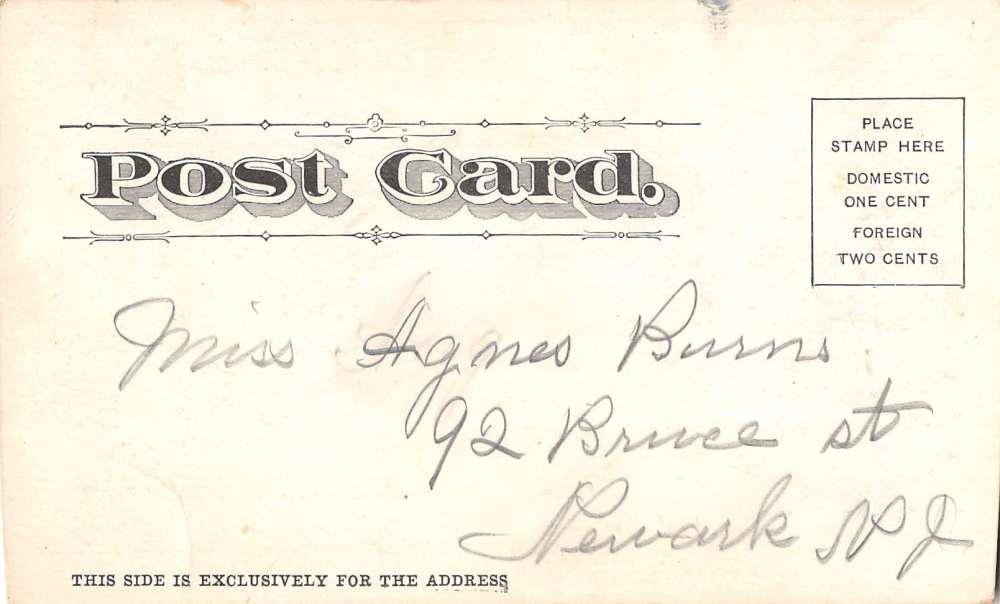 Post Card.
PLACE
STAMP HERE
DOMESTIC
ONE CENT
FOREIGN
TWO CENTS
Miss Agnes Burns
92 Bruce st
Newark N J
THIS SIDE IS EXCLUSIVELY FOR THE ADDRESS